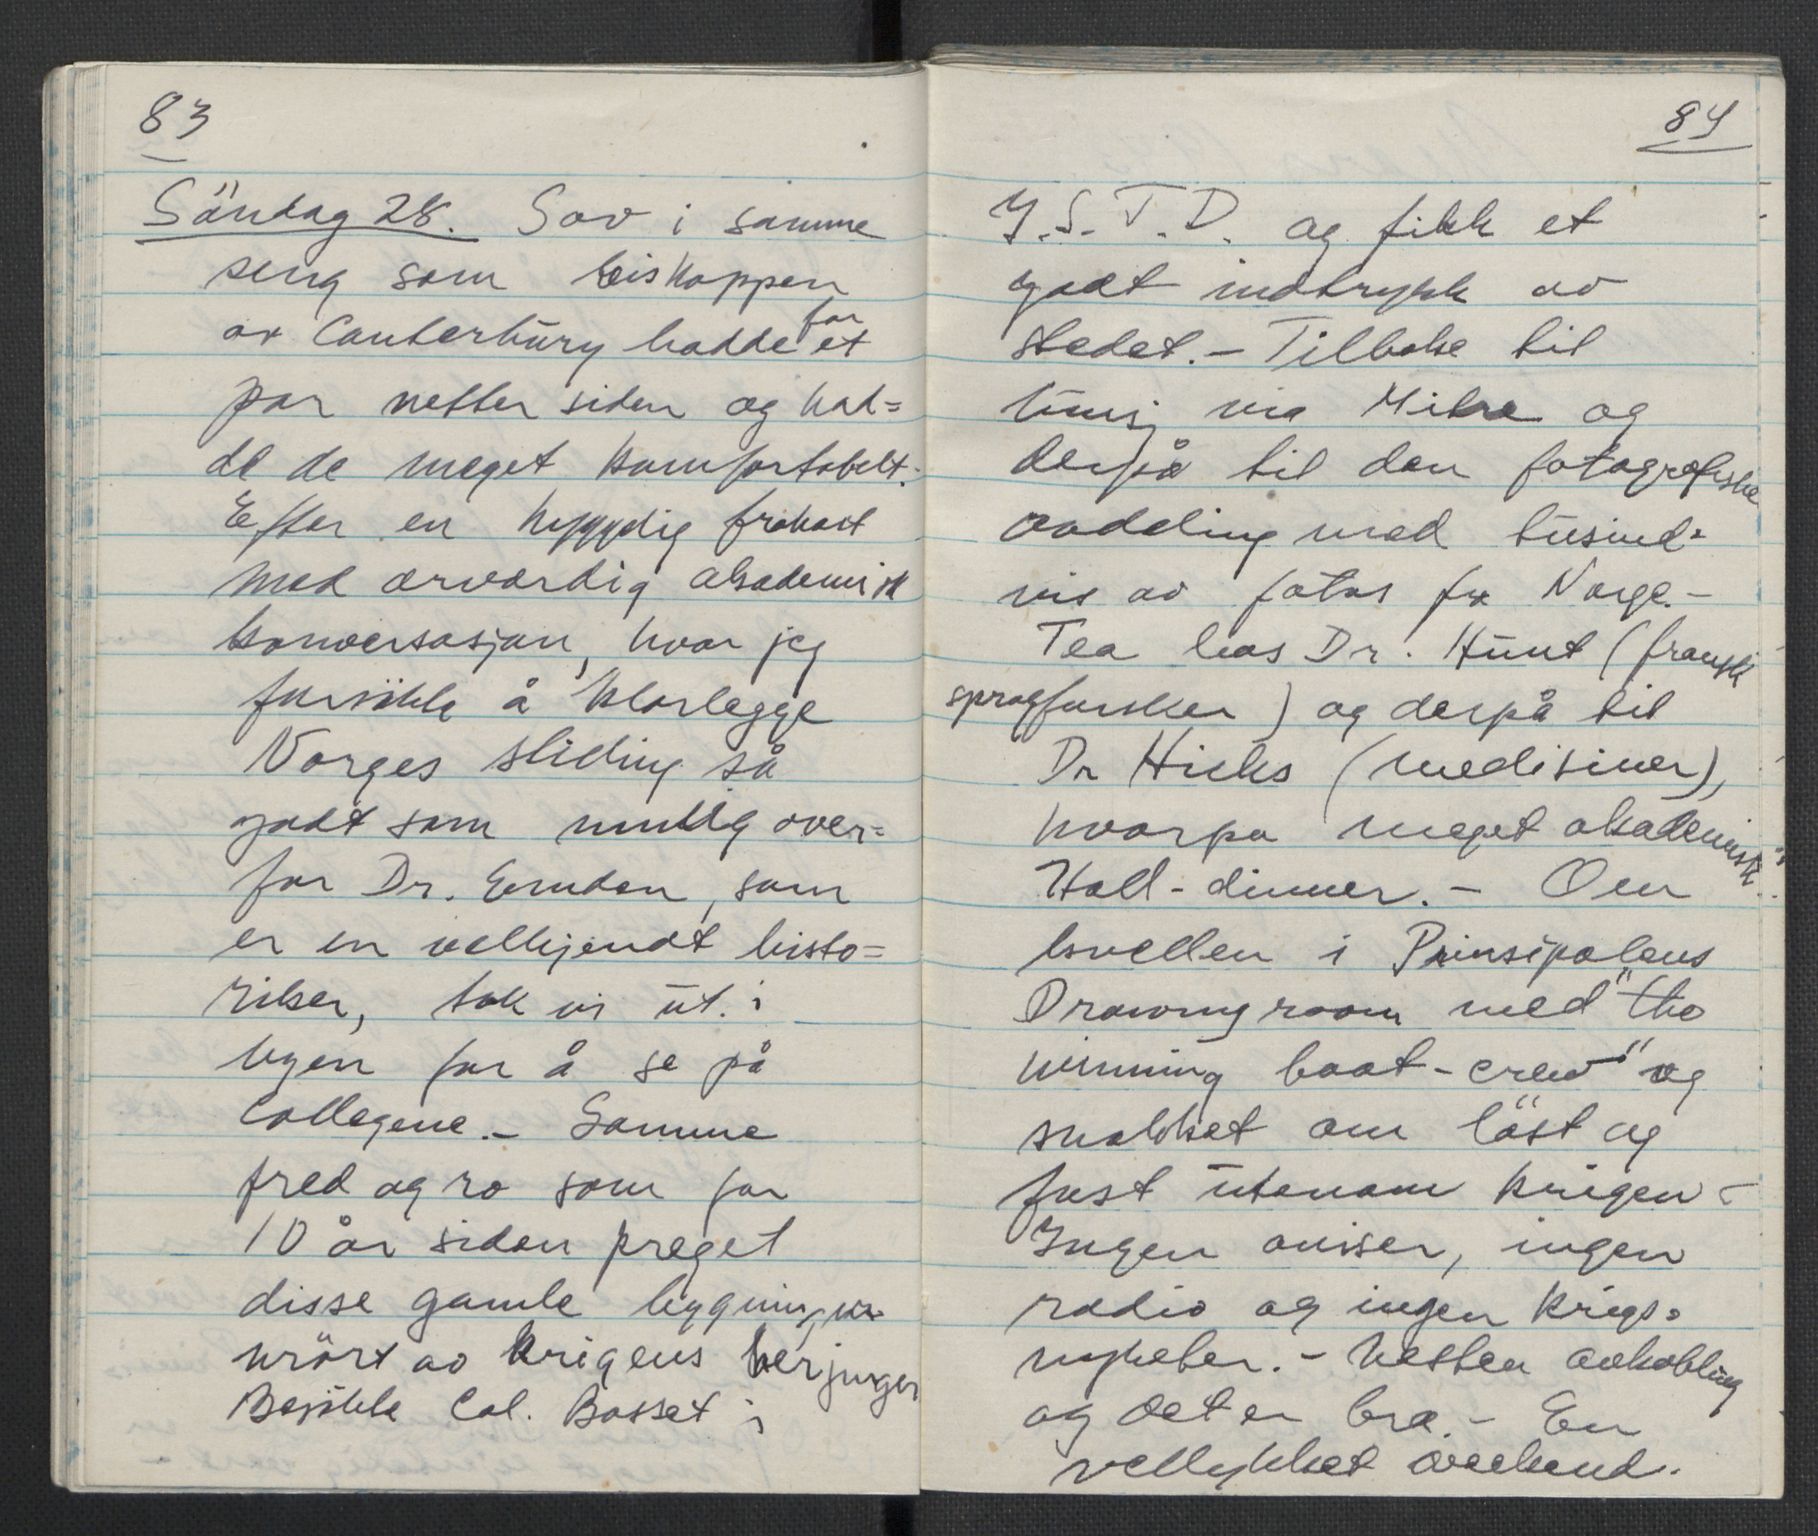 83
Söndag 28. Sov i samme
seng som biskoppen
av Canterbury hadde for et
par netter siden og had=
de de meget komfortabelt.
Efter en hyggelig frokost
med ærverdig akademisk
konversasjon, hvor jeg
forsökte å klarlegge
Norges stilling så
godt som mulig over=
for Dr. Emden, som
er en velkjendt histo=
riker, tok vi ut i
byen for å se på
Collegene. - Samme
fred og ro som for
10 år siden preget
disse gamle bygninger
urört av krigens herjinger
Besökte Col. Basset i
84
I.S.T.D. og fikk et
godt indtrykk av
stedet. - Tilbake til
via Mitre og
derpå til den fotografiske
avdeling med tusind=
vis av fotos fra Norge. -
Tea hos Dr. Hunt (fransk
sprogforsker) og derpå til
Dr Hicks (medisiner),
hvorpå meget akademisk
Hall-dinner. - Om
kvellen i Prinsipalens
Drawingroom med "the
winning boat-crew" og
snakket om löst og
fast utenom krigen -
Ingen aviser, ingen
radio og ingen krigs=
nyheter. - Nesten avkobling
og det er bra. - En
vellykket weekend.